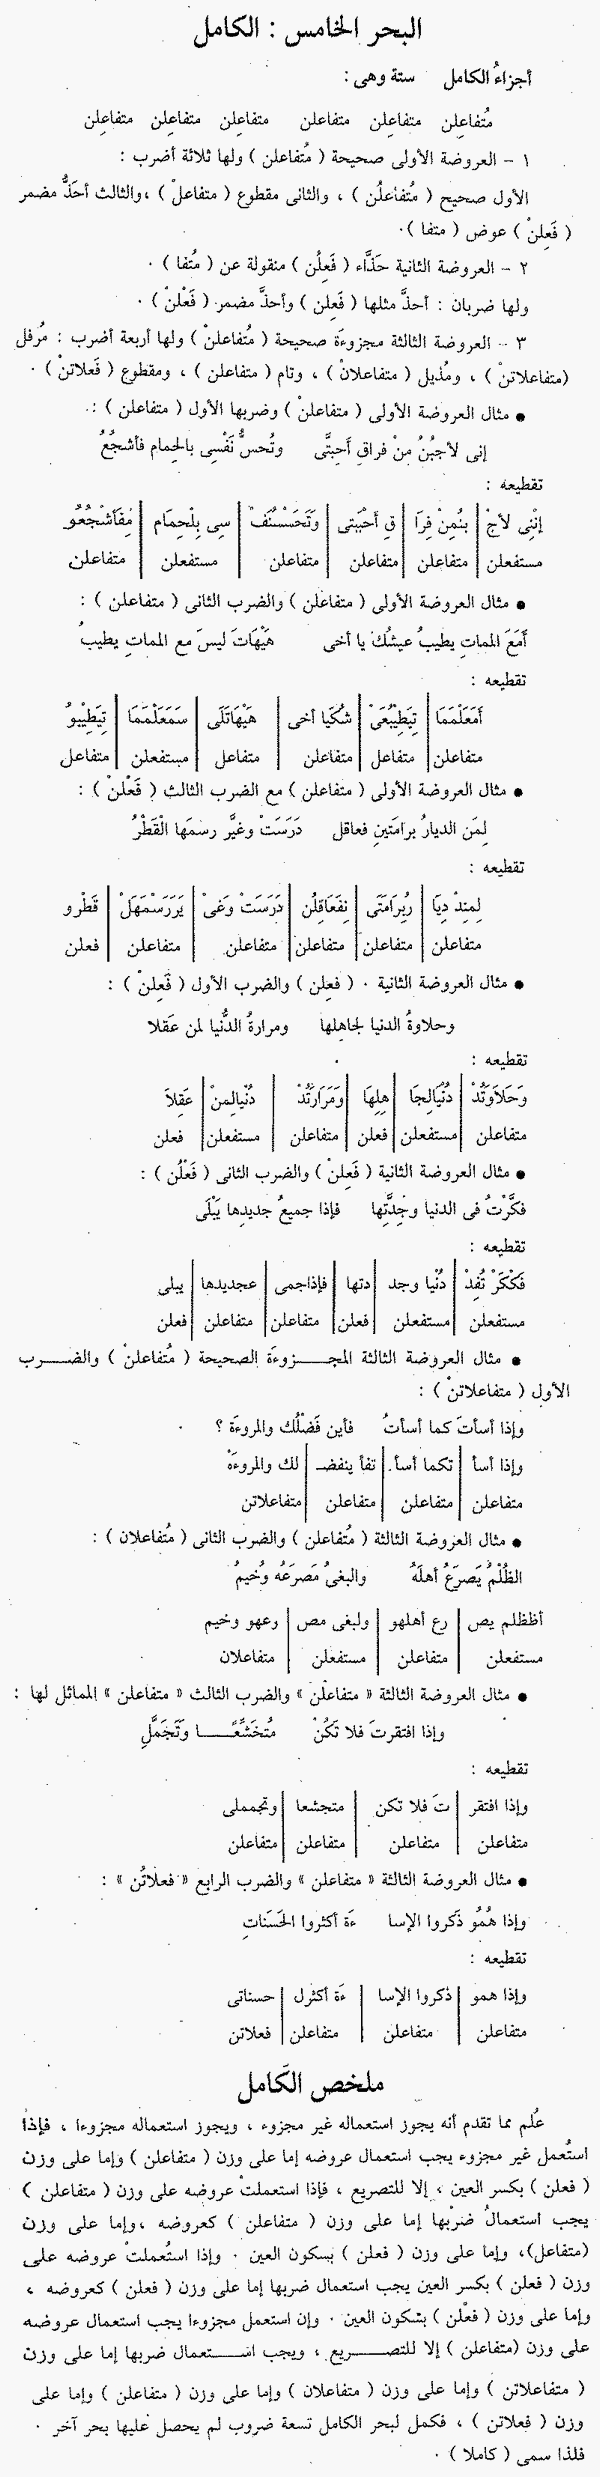 البحر الخامس : الكامل
أجزاءُ الكامل ستة وهى :
مُتفاعِلن متفاعِلن متفاعلن متفاعِلن متفاعِلن متفاعِلن
١ – العروضة الأولى صحيحة ( مُتفاعلن ) ولها ثلاثة أضرب :
الأول صحيح ( مُتفاعلُن ) ، والثانى مقطوع ( متفاعلْ ) ،والثالث أحَذُّ مضمر
( فَعِلنْ ) عوض ( متفا ) .
٢ – العروضة الثانية حَذَّاء ( فَعِلُن ) منقولة عن ( مُتفا ) .
ولها ضربان : أحذَّ مثلها ( فَعِلن ) وأحذَّ مضمر ( فَعْلنْ ) .
٣ – العروضة الثالثة مجزوءَة صحيحة ( مُتفاعلنْ ) ولها أربعة أضرب : مُرفل
(متفاعلاتنْ ) ، ومُذيل ( متفاعلانْ ) ، وتام ( متفاعلن ) ، ومقطوع ( فَعلاتنْ ) .
● مثال العروضة الأولى ( متفاعلنْ ) وضربها الأول ( متفاعلن ) :
إنى لأجبُنُ مِنْ فراقِ أَحِبتَّى وتُحسُّ نَفْسِى بالحِمام فأشجُعُ
تقطيعه :
إنْنِى لأجْ | بنُمِنْ فِرَا | قِ أَحْبَبتى | وَتَحَسْسُنَفْ | سِى بِلْحِمَام | مِفَأَشْجُعُو
مستفعلن | متفاعلن | متفاعلن | متفاعلن | مستفعلن | متفاعلن
● مثال العروضة الأولى ( متفاعلن ) والضرب الثانى ( متفاعلن ) :
أَمَعَ المماتِ يطيبُ عيشُكَ يا أخى هَيْهَاتَ ليسَ مع المماتِ يطيبُ
تقطيعه :
أَمَعَلْمَمَا | تِيَطِيْبُعَىْ | شُكَيا أخى | هَيْهَاتَلَى | سَمَعَلْمَمَا | تِيَطِيْبوُ
متفاعلن | متفاعل | متفاعلن | متفاعل | مستفعلن | متفاعل
● مثال العروضة الأولى ( متفاعلن ) مع الضرب الثالث ( فَعْلنْ ) :
لِمَن الديارُ برامَتَينِ فعاقل دَرَسَتْ وغيَّر رسمَها الْقَطْرُ
تقطيعه :
لِمنِدْ دِيَا | رُبِرَامَتَى | نِفَعَاقِلُن | دَرَسَتْ وَغىْ | يَرَرَسْمَهَلْ | قَطْرو
متفاعلن | متفاعلن | متفاعلن | متفاعلن | متفاعلن | فعلن
● مثال العروضة الثانية . ( فعِلن ) والضرب الأول ( فَعِلنْ ) :
وحلاوةُ الدنيا لجاهِلها ومرارةُ الدُّنيا لمن عَقلا
تقطيعه :
وَحَلاَوَتُدْ | دُنْيَالِجَا | هِلِهَا | وَمَرَارَتُدْ | دُنْيالِمنْ | عَقِلاَ
متفاعلن | مستفعلن | فعلن | متفاعلن | مستفعلن | فعلن
● مثال العروضة الثانية ( فَعِلنْ ) والضرب الثانى ( فَعْلُن ) :
فكَّرْتُ فى الدنيا وجِدَّتِها فإذا جميعُ جديدِها يَبْلَى
تقطيعه :
فَكْكَرْ تُفِدْ | دُنْيا وجد | دتها | فإذاجمى | عجديدها | يبلى
مستفعلن | مستفعلن | فعلن | متفاعلن | متفاعلن | فعلن
● مثال العروضة الثالثة المجـــزوءَة الصحيحة ( مُتفاعلنْ ) والضـــرب
الأول ( متفاعلاتنْ ) :
وإذا أسأتَ كما أسأتُ فأين فَضْلُك والمروءَة ؟
وإذا أسأ | تكما أسأ | تفأ ينفضـ | لك والمروءَهْ
متفاعلن | متفاعلن | متفاعلن | متفاعلاتن
● مثال العروضة الثالثة ( مُتفاعلن ) والضرب الثانى ( مُتفاعلان ) :
الظُلْمُ يَصرَعُ أهلَهُ والبغىُ مَصرَعُه وُخيمُ
أظظلم يص | رع أهلهو | ولبغى مص | رعهو وخيم
مستفعلن | متفاعلن | مستفعلن | متفاعلان
● مثال العروضة الثالثة « متفاعلن » والضرب الثالث « متفاعلن » المماثل لها :
وإذا افتقرتَ فلا تَكُنْ مُتخَشِّعًـــا وَتَجَمَّلِ
تقطيعه :
وإذا افتقر | تَ فلا تكن | متجشعا | وتجمملى
متفاعلن | متفاعلن | متفاعلن | متفاعلن
● مثال العروضة الثالثة « متفاعلن » والضرب الرابع « فعلاتُن » :
وإذا هُمُو ذَكروا الإسا ءَة أكثروا الحَسَناتِ
تقطيعه :
وإذا همو | ذكروا الإسا | ءَة أكثرل | حسناتى
متفاعلن | متفاعلن | متفاعلن | فعلاتن
ملخص الكامل
عُلم مما تقدم أنه يجوز استعماله غير مجزوء ، ويجوز استعماله مجزوءا ، فإذا
استُعمل غير مجزوء يجب استعمال عروضه إما على وزن ( متفاعلن ) وإما على وزن
( فعلن ) بكسر العين ، إلا للتصريع ، فإذا استعملتْ عروضه على وزن ( متفاعلن )
يجب استعمالُ ضربْها إما على وزن ( متفاعلن ) كعروضه ،وإما على وزن
(متفاعل)، وإما على وزن ( فعلن ) بسكون العين . وإذا استُعملتْ عروضه على
وزن ( فعلن ) بكسر العين يجب استعمال ضربها إما على وزن ( فعلن ) كعروضه ،
وإما على وزن ( فعْلن ) بسكون العين . وإن استعمل مجزوءا يجب استعمال عروضه
على وزن (متفاعلن ) إلا للتصـــريع ، ويجب اســـتعمال ضربها إما على وزن
( متفاعلاتن ) وإما على وزن ( متفاعلان ) وإما على وزن ( متفاعلن ) وإما على
وزن ( فعلاتن ) ، فكمل لبحر الكامل تسعة ضروب لم يحصل عليها بحر آخر .
فلذا سمى ( كاملا ) .